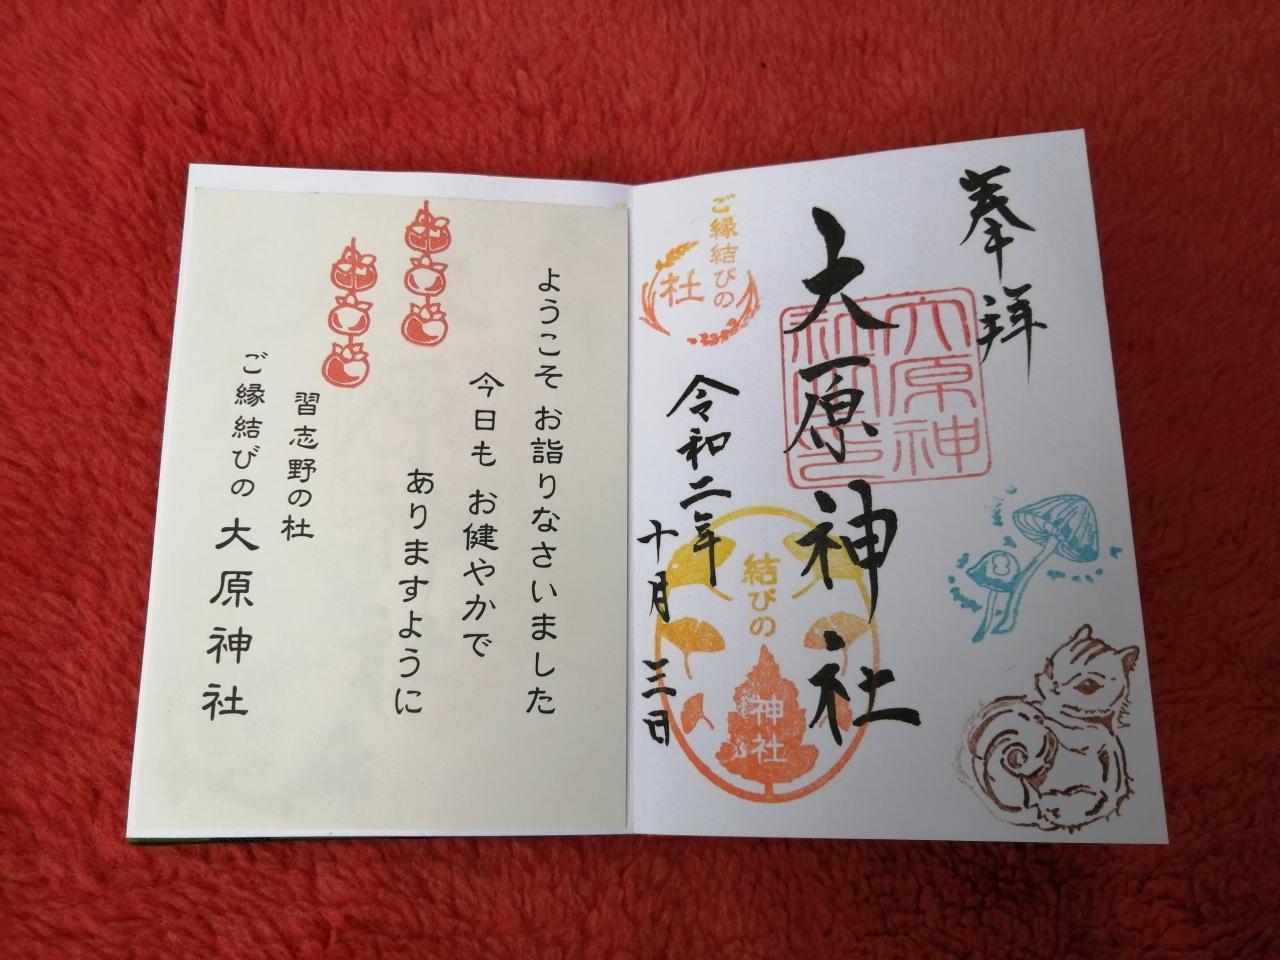 奉拝
大原神社
大原神
社之印
令和二年
十月三日
ご縁結びの
杜
結びの
神社
ようこそ お詣りなさいました
今日も お健やかで
ありますように
習志野の杜
ご縁結びの 大原神社